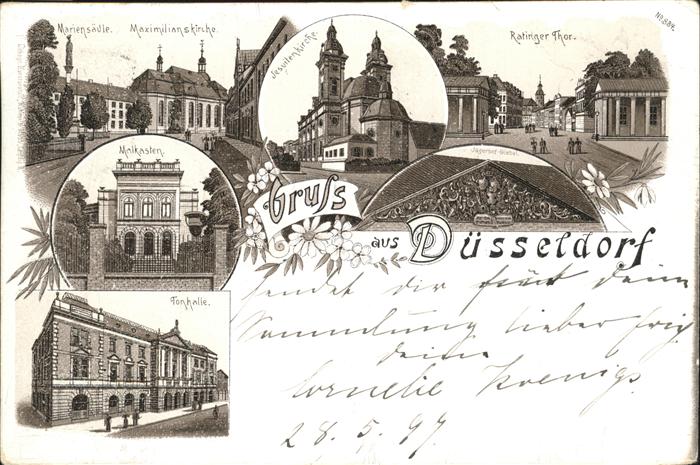 Mariensäule. Maximilianskirche.
Jesuitenkirche.
Ratinger Thor.
No. 884.
Malkasten.
Jägerhof-Giebel.
Gruss
aus Düsseldorf
Tonhalle.
sendet dir für deine
Sammlung lieber
deine
Cornelie Koenigs
28. 5. 97.